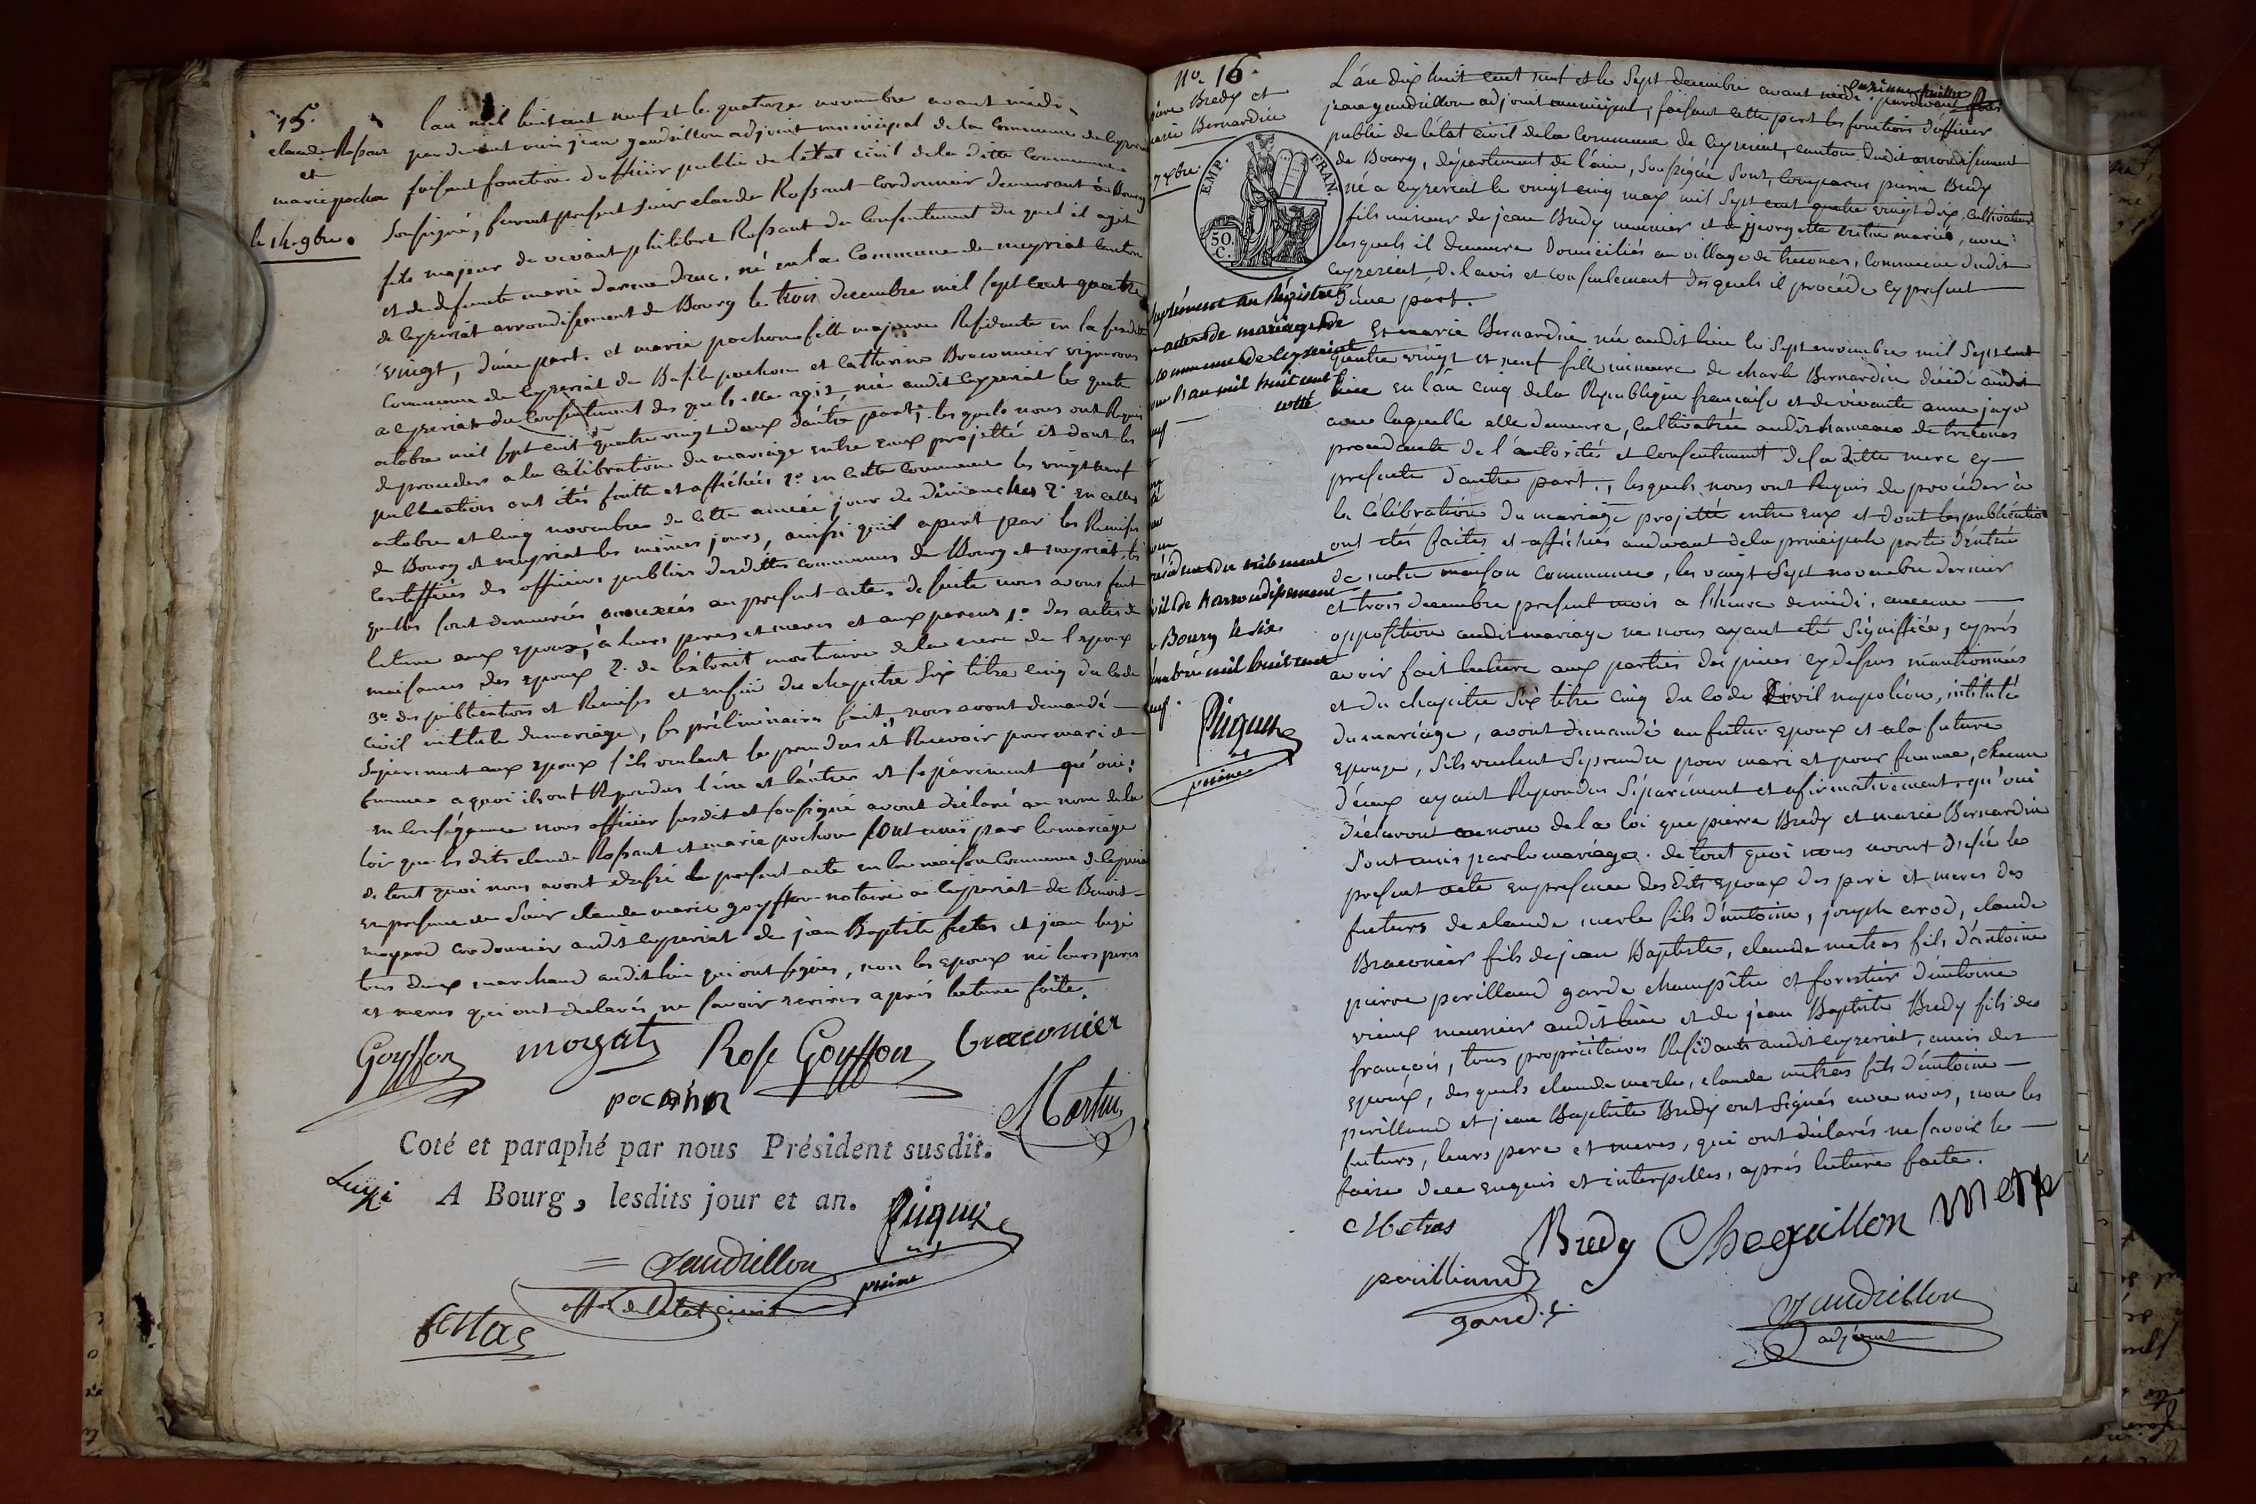 15.
claude Rossant
et
marie pochon
le 14. 9bre.
l'an mil huit cent neuf et le quatorze novembre avant midi
par devant nous jean gaudrillon adjoint municipal de la commune de ceyzeriat
faisant fonction d'officier public de l'état civil de la ditte commune
soussigné, furent present sieur claude Rossant cordonnier demeurant à Bourg
fils majeur de vivant philibert Rossant du consentement du quel il agit
et de defunte marie né en la commune de meyriat canton
de ceyzeriat arrondissement de Bourg le trois decembre mil sept cent quatre
vingt, d'une part. et marie pochon fille majeure Residante en la susditte
commune de ceyzeriat de Basile pochon et Catherine Braconnier vignerons
a ceyzeriat du consentement des quels elle agit, née audit ceyzeriat le quatre
octobre mil sept cent quatre vingt deux d'autre part; les quels nous ont Requis
de proceder a la célébration du mariage entre eux projetté et dont les
publications ont étés faitte et affichées 1º. en cette commune les vingt neuf
octobre et cinq novembre de cette année jour de dimanches 2º. en celles
de Bourg et meyriat les mêmes jours, ainsi qu'il apert par les Remises
certifficés des officiers publics desdittes communes de Bourg et meyriat, les
quelles sont demeurés annexées au present acte, de suite nous avons fait
lecture aux epoux, a leurs peres et meres et aux parens 1º. des actes de
naissances des epoux 2º. de l'extrait mortuaire de la mere de l'epoux
3º. des publications et Remises et enfin du chapitre six titre cinq du code
civil intitulé du mariage, les préliminaires fait, nous avont demandé
séparement aux epoux s'ils veulent se prendre et Recevoir pour mari et
femme a quoi ils ont Repondus l'une et l'autre et séparément qu'oui;
en conséquence nous officier susdit et soussigné avont déclaré au nom de la
loi que les dits claude Rossant et marie pochon sont unis par le mariage
de tout quoi nous avont dressé le present acte en la maison commune de ceyzeriat
en presence de sieur claude marie goyffon notaire a ceyzeriat de Benoit
cordonnier audit ceyzeriat de jean Baptiste fettas et jean
tous deux marchand audit lieu qui ont signés, non les epoux ni leurs peres
et meres qui ont déclarés ne savoir ecrire après lecture faite.
Goyffon morgat Rose Goyffon braconier
pochon
Martin
Coté et paraphé par nous Président susdit.
A Bourg, lesdits jour et an.
Puguy
Gaudrillon
offr. de l'état civil
fettas
Nº. 16.
pierre Bredy et
marie Bernardin
7 xbre.
EMP. FRAN.
50.
C.
suplément au Régistre
actes de mariage de
commune de ceyzeriat
l'an mil huit cent
neuf
cotté
président du tribunal
civil de l'arrondissement
Bourg le six
mil huit cent
neuf.
Puguy
L'an dix huit cent neuf et le sept decembre avant midi. pardevant
jean gaudrillon adjoint municipal, faisant cette part les fonctions d'officier
public de l'état civil de la commune de ceyzeriat, canton dudit arrondissement
de Bourg, département de l'ain, soussigné sont, comparus pierre Bredy
né a ceyzeriat le vingt cinq may mil sept cent quatre vingt dix, cultivateur
fils mineur de jean Bredy meunier et de georgette mariés, avec
lesquels il demeure domiciliés au village de treconas, commune dudit
ceyzeriat de l'avis et consentement desquels il procéde cy present
d'une part.
Et marie Bernardin née audit lieu le sept novembre mil sept cent
quatre vingt et neuf fille mineure de charle Bernardin décédé audit
lieu en l'an cinq de la Republique française et de vivante anne jayo
avec laquelle elle demeure, cultivatrice audit hameau de treconas
procedante de l'autorité et consentement de sa ditte mere cy
presente d'autre part., lesquels nous ont Requis de procéder à
la célébration du mariage projetté entre eux et dont les publications
ont étés faites et affichées audevant de la principale porte d'entrée
de notre maison commune, les vingt sept novembre dernier
et trois decembre present mois a l'heure de midi, aucune
opposition audit mariage ne nous ayant été signiffiée, après
avoir fait lecture aux parties des pieces cy dessus mentionnées
et du chapitre six titre cinq du code civil napoléon, intitulé
du mariage, avont demandé au futur epoux et a la future
epouze, s'ils veulent se prendre pour mari et pour femme, chacun
d'eux ayant Repondu séparément et afirmativement, qu'oui
déclaront au nom de la loi que pierre Bredy et marie Bernardin
sont unis par le mariage. de tout quoi nous avont dressé le
present acte en presence des dits epoux des pere et meres des
futurs de claude merle fils d'antoine, joseph arod, claude
Braconier fils de jean Baptiste, claude metras fils d'antoine
pierre perilland garde champêtre et forestier d'antoine
vieux meunier audit lieu et de jean Baptiste Bredy fils de
françois, tous propriétaires Residants audit ceyzeriat, amis des
epoux, des quels claude merle, claude metras fils d'antoine
perilland et jean Baptiste Bredy ont signés avec nous, non les
futurs, leurs pere et meres, qui ont déclarés ne savoir le
faire de ce enquis et interpellés, après lecture faite.
C Metras Bredy Chograillon merle
perilliand
gard. f.
Gaudrillon
adjoint